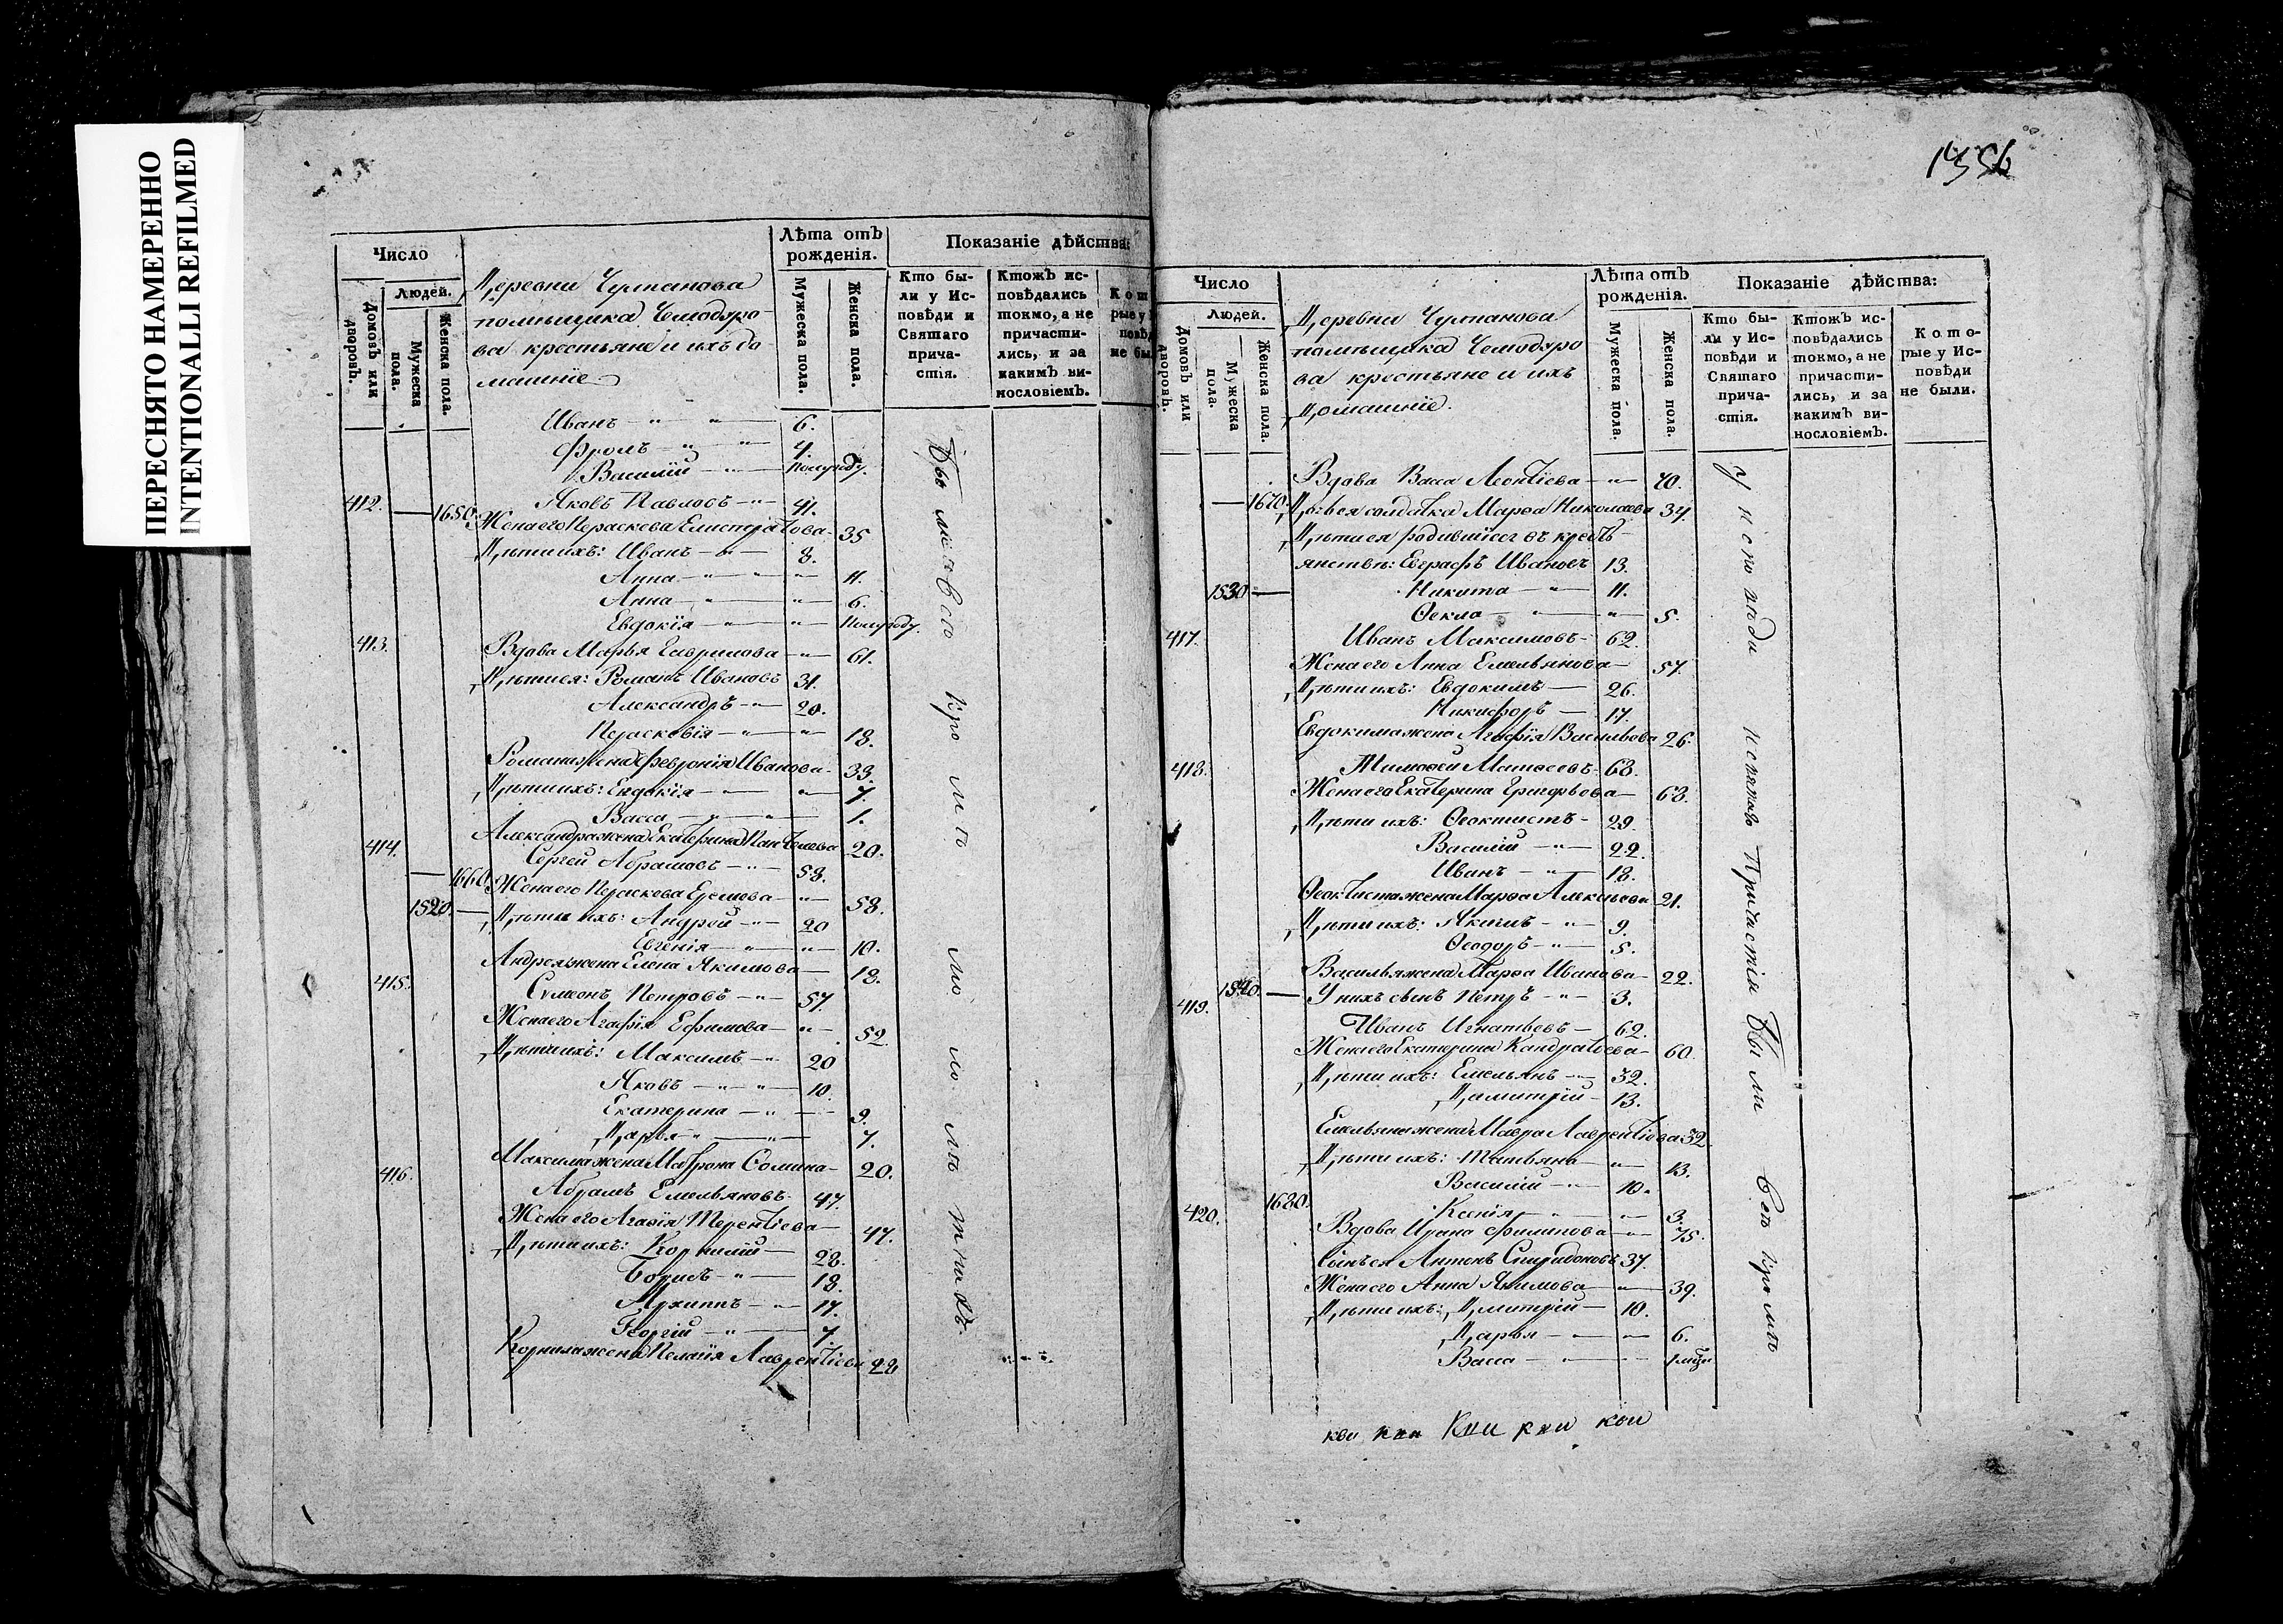 ПЕРЕСНЯТО НАМЕРЕННО
INTENTIONALLI REFILMED
Число
Людей.
Домовъ или дворовъ.
Мужеска пола.
Женска пола.
Деревни Чулпанова
помѣщика Чемодуро-
ва крестьяне и ихъ до-
машніе
Лѣта отъ рожденія.
Мужеска пола.
Женска пола.
Показаніе дѣйства:
Кто бы-
ли у Ис-
повѣди и
Святаго
прича-
стія.
Ктожъ ис-
повѣдались
токмо, а не
причасти-
лись, и за
какимъ ви-
нословіемъ.
Иванъ 6.
Фролъ 4.
Василій полугоду
412. Яковъ Павловъ 41.
1650. Жена его Пераскева Елистратова 35
Дѣти ихъ: Иванъ 8.
Анна 11.
Анна 6.
Евдокія полугоду.
413. Вдова Марья Гаврилова 61.
Дѣти ея: Романъ Ивановъ 31.
Александръ 20.
Перасковія 18.
Романа жена Февронія Иванова 33.
Дѣти ихъ: Евдокія 7.
Васса 1.
Александра жена Екатерина 20.
414. Сергей Абрамовъ 58.
1660. Жена его Пераскева Еремова 58.
1520. Дѣти ихъ: Андрей 20
Евгенія 10.
Андрея жена Елена Якимова 18.
415. Сѵмеонъ Петровъ 57.
Жена его Агафія Ефимова 52.
Дѣти ихъ: Максимъ 20
Яковъ 10.
Екатерина 9.
Дарья 7.
Максима жена Матрона Сомина 20.
416. Абрамъ Емельяновъ 47.
Жена его Агафія Терентіева 47.
Дѣти ихъ: Корнилій 28.
Борисъ 18.
Архиппъ 17.
Георгій 7.
Корнила жена Пелагія Лаврентіева 28
1356
Число
Людей.
Домовъ или дворовъ.
Мужеска пола.
Женска пола.
Деревни Чулпанова
помѣщика Чемодуро
ва крестьяне и ихъ
Домашніе.
Лѣта отъ рожденія.
Мужеска пола.
Женска пола.
Показаніе дѣйства:
Кто бы-
ли у Ис-
повѣди и
Святаго
прича-
стія.
Ктожъ ис-
повѣдались
токмо, а не
причасти-
лись, и за
какимъ ви-
нословіемъ.
Кото-
рые у Ис-
повѣди
не были.
Вдова Васса Леонтіева 70.
1670. солдатка Марфа Николаева 34.
Дѣти ея родившіеся въ кресть-
янствѣ: Евграфъ Ивановъ 13.
1530 Никита 11.
Ѳекла 5.
417. Иванъ Максимовъ 62.
Жена его Анна Емельянова 57.
Дѣти ихъ: Евдокимъ 26.
Никифоръ 17.
Евдокима жена Агафія Васильева 26.
418. Тимоѳей Матвеевъ 63.
Жена его Екатерина Григорьева 63.
Дѣти ихъ: Ѳеоктистъ 29.
Василій 22.
Иванъ 18.
Ѳеоктиста жена Марѳа Алексѣева 21.
Дѣти ихъ: Якимъ 9.
Ѳеодоръ 5.
Василья жена Марѳа Иванова 22.
1540. У нихъ сынъ Петръ 3.
419. Иванъ Игнатьевъ 62.
Жена его Екатерина Кандратіева 60.
Дѣти ихъ: Емельянъ 32.
Димитрій 13.
Емельяна жена Мавра Лаврентіева 32.
Дѣти ихъ: Татьяна 13.
Василій 10.
1680. Ксенія 3.
420. Вдова Ирина Филипова 75.
Сынъ ея Антонъ Спиридоновъ 37.
Жена его Анна Якимова 39.
Дѣти ихъ: Дмитрій 10.
Дарья 6.
Васса
У исповѣди и святаго Причастія Были всѣ кромѣ